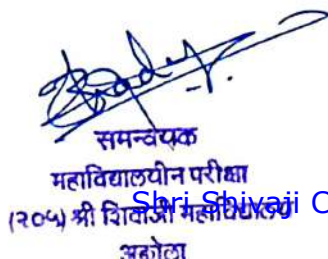 समन्वयक
महाविद्यालयीन परीक्षा
(२०५) श्री शिवाजी महाविद्यालय
Shri Shivaji C
अकोला